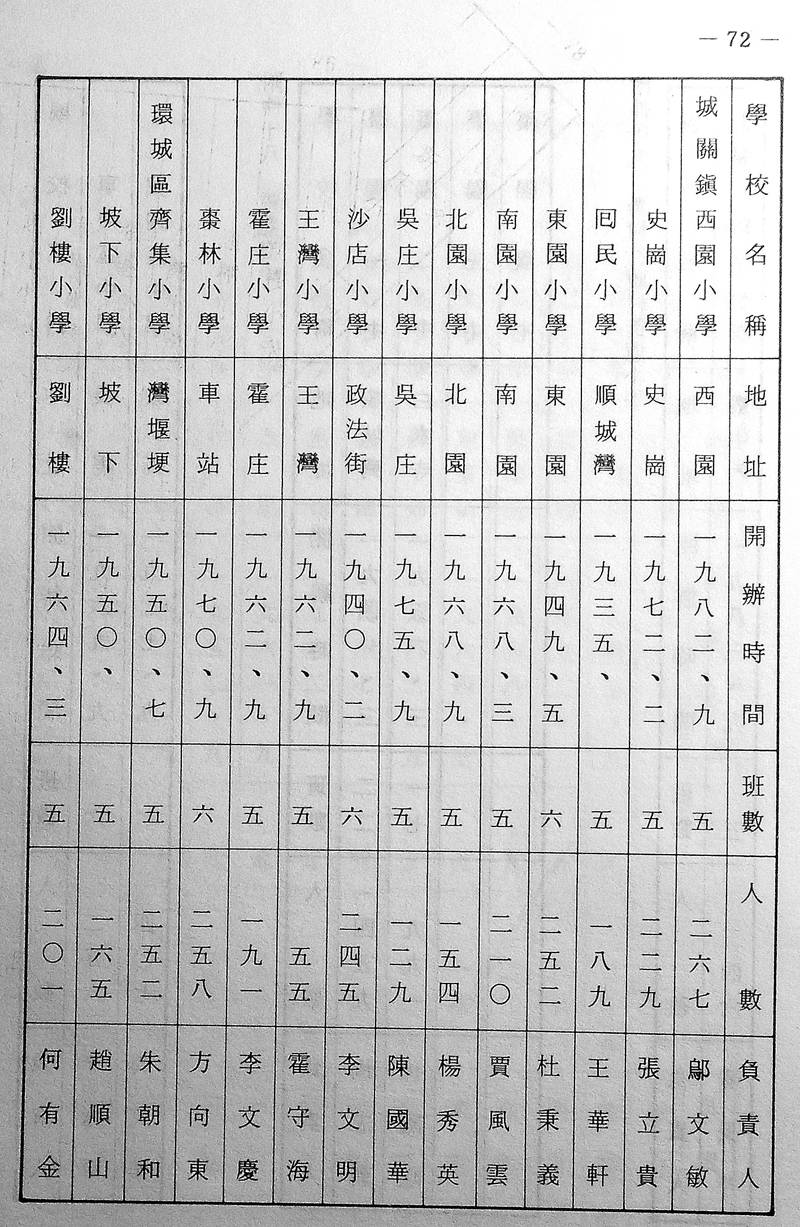 — 72 —
學校名稱 地址 開辦時間 班數 人數 負責人
城關鎮西園小學 西園 一九八二、九 五 二六七 鄔文敏
史崗小學 史崗 一九七二、二 五 二二九 張立貴
回民小學 順城灣 一九三五、 五 一八九 王華軒
東園小學 東園 一九四九、五 六 二五二 杜秉義
南園小學 南園 一九六八、三 五 二一〇 賈風雲
北園小學 北園 一九六八、九 五 一五四 楊秀英
吳庄小學 吳庄 一九七五、九 五 一二九 陳國華
沙店小學 政法街 一九四〇、二 六 二四五 李文明
王灣小學 王灣 一九六二、九 五 五五 霍守海
霍庄小學 霍庄 一九六二、九 五 一九一 李文慶
棗林小學 車站 一九七〇、九 六 二五八 方向東
環城區齊集小學 灣堰埂 一九五〇、七 五 二五二 朱朝和
坡下小學 坡下 一九五〇、 五 一六五 趙順山
劉樓小學 劉樓 一九六四、三 五 二〇一 何有金